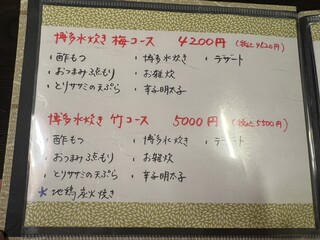 博多水炊き 梅コース 4200円 (税込4620円)
・酢もつ ・博多水炊き ・デザート
・おつまみ3点もり ・お雑炊
・とりササミの天ぷら ・辛子明太子
博多水炊き 竹コース 5000円 (税込5500円)
・酢もつ ・博多水炊き ・デザート
・おつまみ3点もり ・お雑炊
・とりササミの天ぷら ・辛子明太子
★地鶏炭火焼き